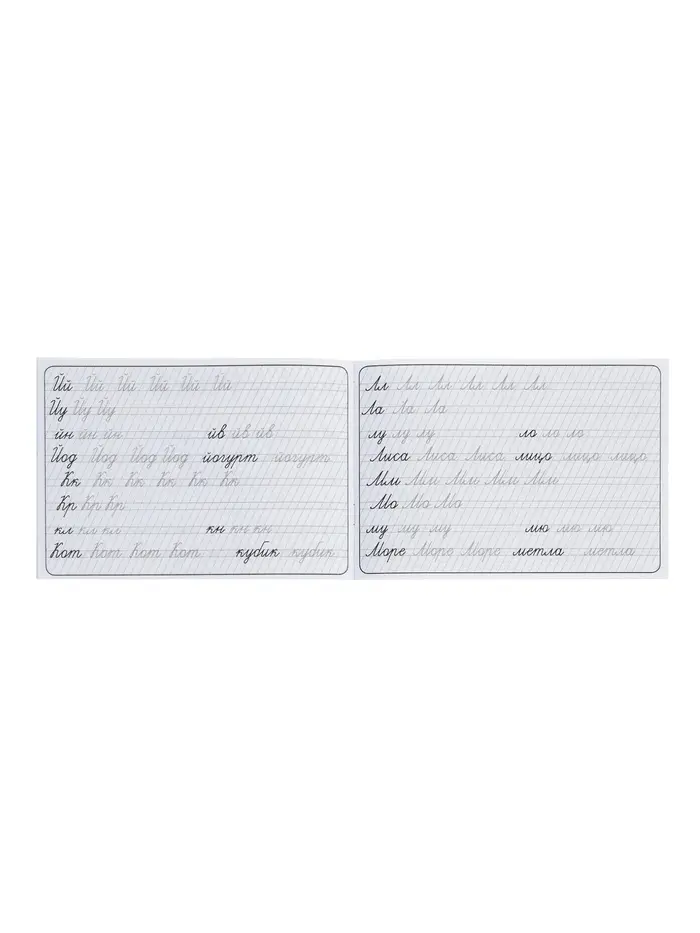 Йй Йй Йй Йй Йй Йй
Йу Йу Йу
йн йн йн йв йв йв
Йод Йод Йод Йод йогурт йогурт
Кк Кк Кк Кк Кк Кк
Кр Кр Кр
кл кл кл кн кн кн
Кот Кот Кот Кот кубик кубик
Лл Лл Лл Лл Лл Лл
Ла Ла Ла
лу лу лу ло ло ло
Лиса Лиса Лиса лицо лицо лицо
Мм Мм Мм Мм Мм
Мо Мо Мо
му му му мю мю мю
Море Море Море метла метла